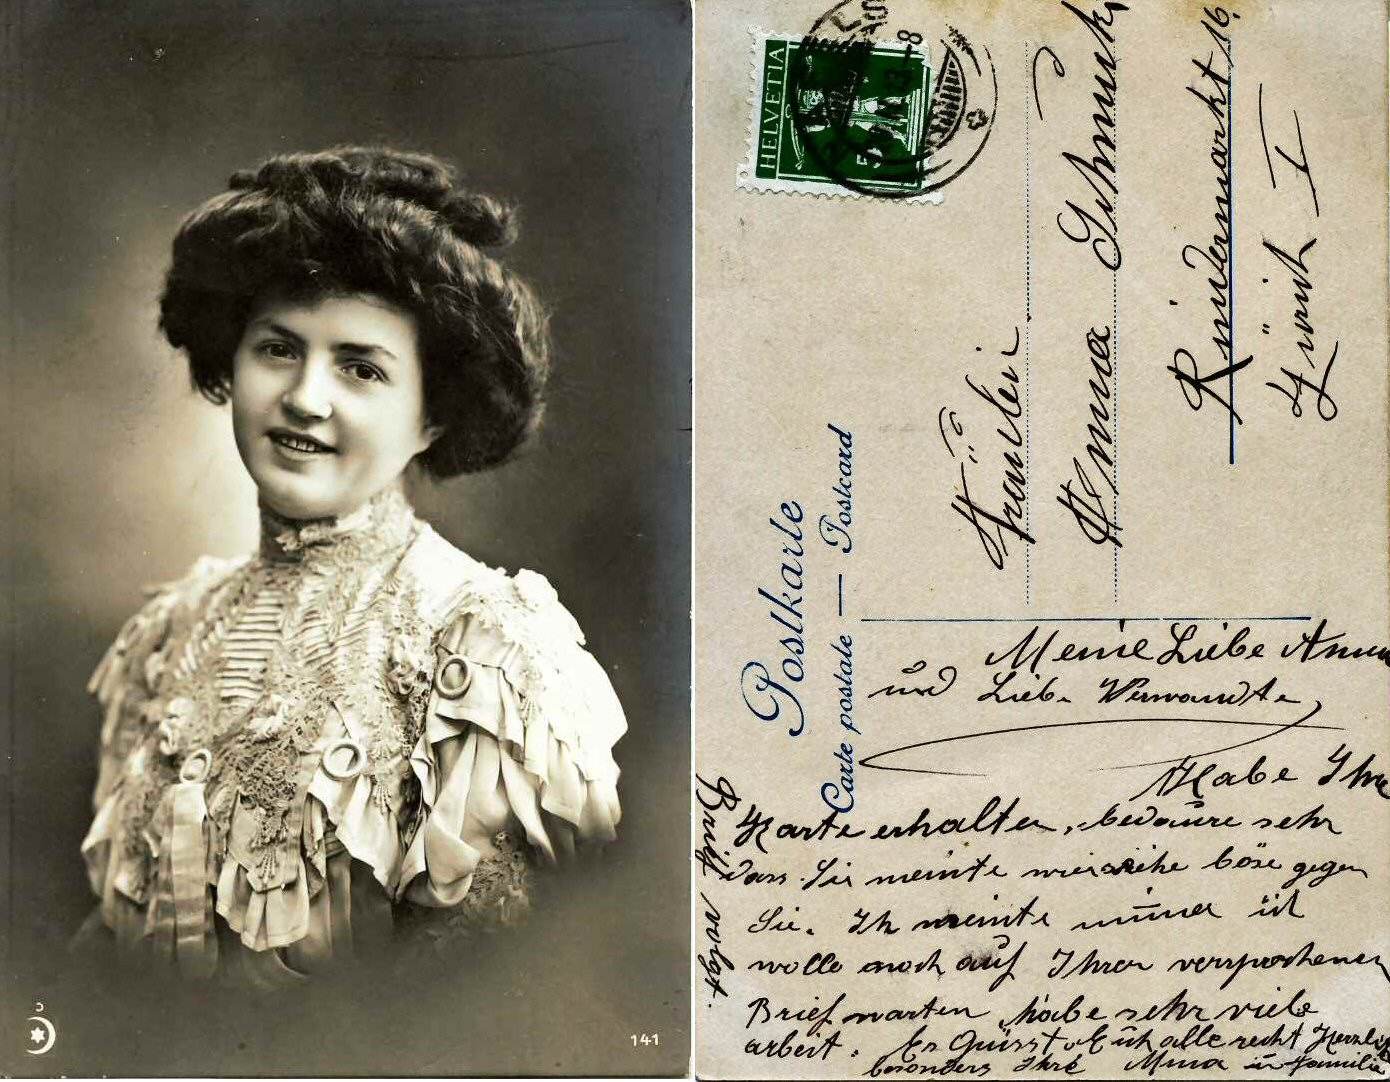 141
HELVETIA
5
Postkarte
Carte postale — Postcard
Fräulei
Anna Schmuk
Rindermarkt 16.
Zürich I
Meine Liebe Anna
und Liebe Verwandte
Habe Ihre
Karte erhalten, bedaure sehr
dass Sie meinte böse gegen
Sie. Ich meinte immer ich
wolle noch auf Ihrer versprochenen
Brief warten, habe sehr viele
arbeit. Es Grüsst Euch alle recht Herzlich
besonders Ihre Mina u Familie
Brief volgt.